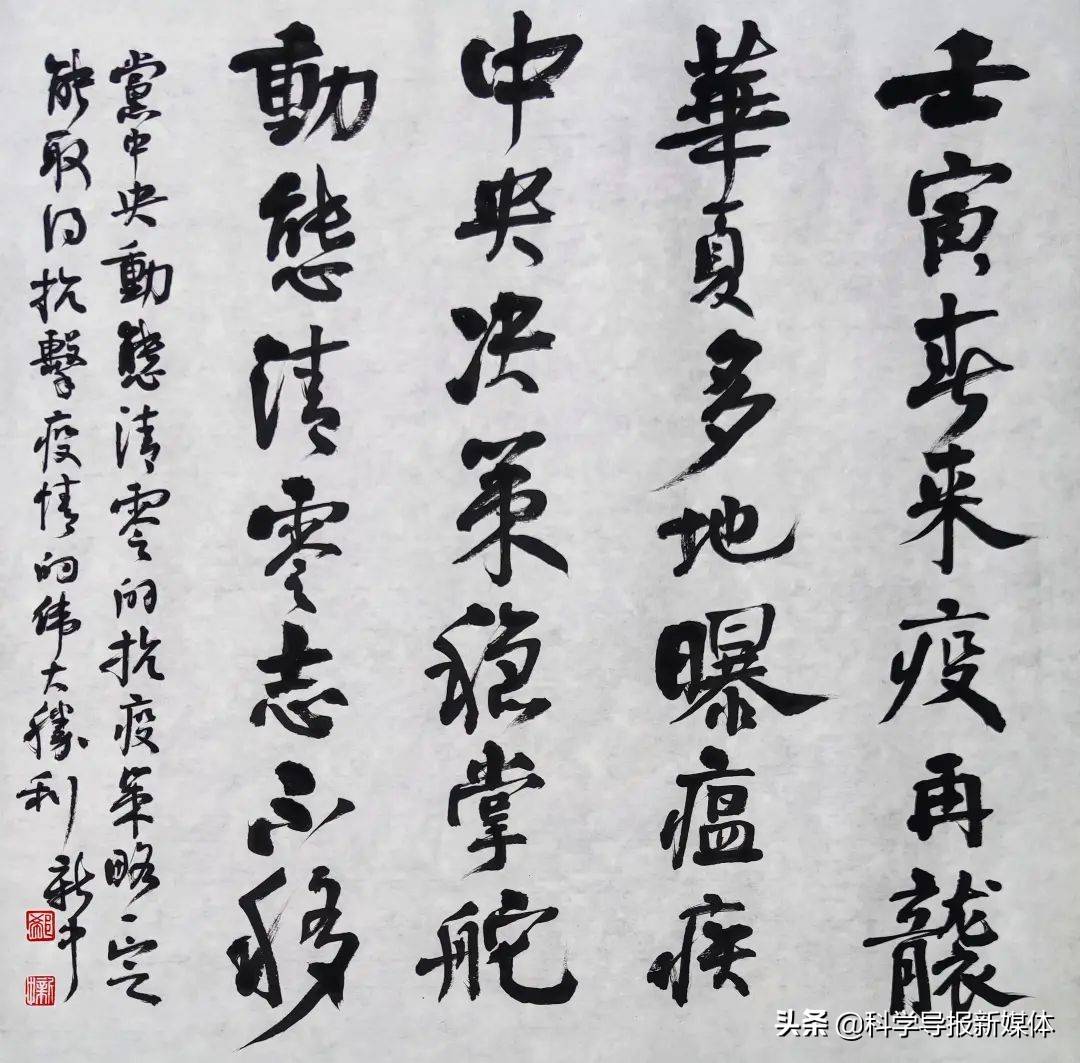 壬寅春来疫再襲
華夏多地曝瘟疾
中央决策稳掌舵
動態清零志不移
黨中央動態清零的抗疫策略一定
能取得抗擊疫情的伟大勝利 新中
头条 @科学导报新媒体